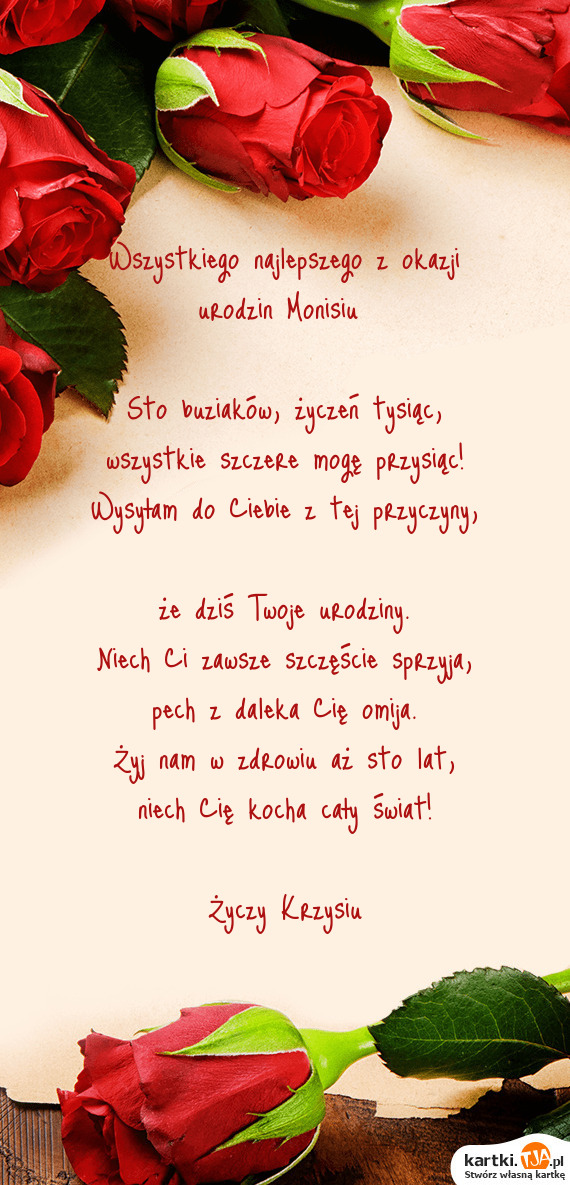 Wszystkiego najlepszego z okazji
urodzin Monisiu
Sto buziaków, życzeń tysiąc,
wszystkie szczere mogę przysiąc!
Wysyłam do Ciebie z tej przyczyny,
że dziś Twoje urodziny.
Niech Ci zawsze szczęście sprzyja,
pech z daleka Cię omija.
Żyj nam w zdrowiu aż sto lat,
niech Cię kocha cały świat!
Życzy Krzysiu
kartki.TJA.pl
Stwórz własną kartkę